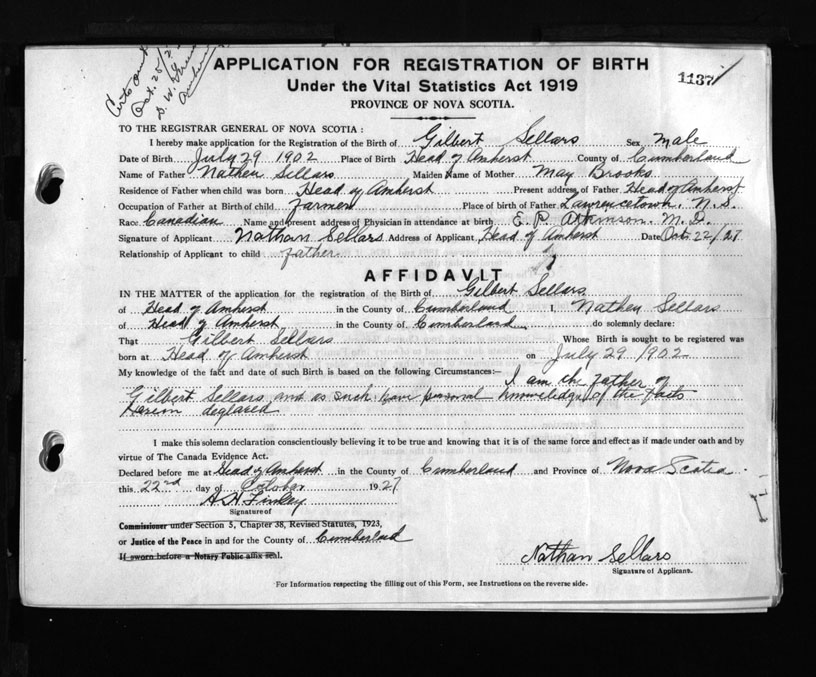 Certs out
Oct. 25/2
D. W.
Amherst
APPLICATION FOR REGISTRATION OF BIRTH
1137
Under the Vital Statistics Act 1919
PROVINCE OF NOVA SCOTIA.
TO THE REGISTRAR GENERAL OF NOVA SCOTIA:
I hereby make application for the Registration of the Birth of Gilbert Sellars Sex Male
Date of Birth July 29 1902 Place of Birth Head of Amherst County of Cumberland
Name of Father Nathen Sellars Maiden Name of Mother May Brooks
Residence of Father when child was born Head of Amherst Present address of Father Head of Amherst
Occupation of Father at Birth of child farmer Place of birth of Father Lawrencetown. N.S.
Race Canadian Name and present address of Physician in attendance at birth E. P. Atkinson. M.D.
Signature of Applicant Nathan Sellars Address of Applicant Head of Amherst Date Oct 22/27
Relationship of Applicant to child father
AFFIDAVIT
IN THE MATTER of the application for the registration of the Birth of Gilbert Sellars
of Head of Amherst in the County of Cumberland I, Nathen Sellars
of Head of Amherst in the County of Cumberland do solemnly declare:
That Gilbert Sellars Whose Birth is sought to be registered was
born at Head of Amherst on July 29 1902
My knowledge of the fact and date of such Birth is based on the following Circumstances:— I am the father of
Gilbert Sellars and as such have personal knowledge of the facts
herein deglared
I make this solemn declaration conscientiously believing it to be true and knowing that it is of the same force and effect as if made under oath and by
virtue of The Canada Evidence Act.
Declared before me at Head of Amherst in the County of Cumberland and Province of Nova Scotia.
this 22nd day of October 1927
A. H. Finlay
Signature of
Commissioner under Section 5, Chapter 38, Revised Statutes, 1923,
or Justice of the Peace in and for the County of Cumberland
If sworn before a Notary Public affix seal.
Nathan Sellars
Signature of Applicant.
For Information respecting the filling out of this Form, see Instructions on the reverse side.